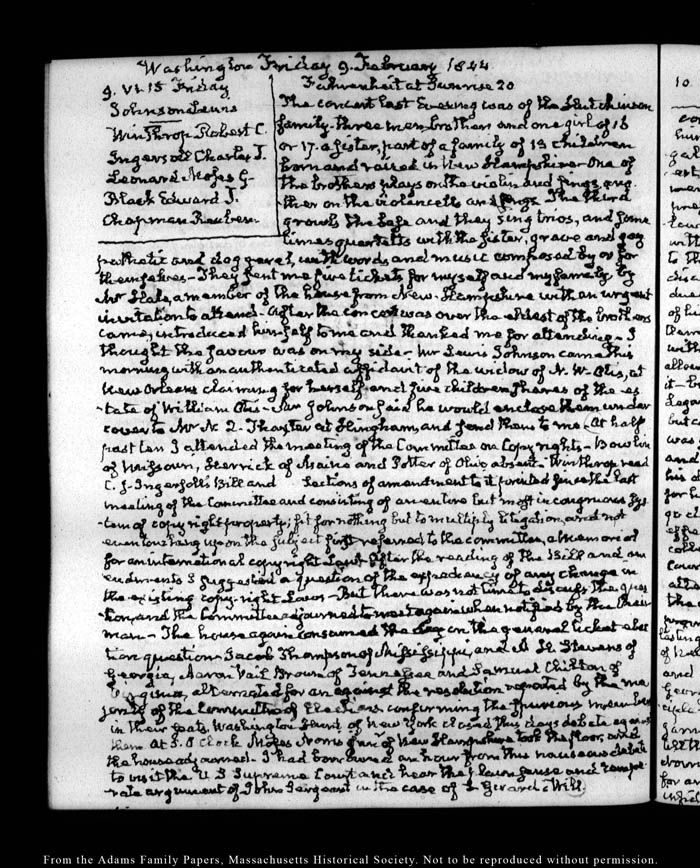 Washington Friday 9. February 1844
9. VI.15 Friday
Johnson Lewis
Winthrop Robert C.
Ingersoll Charles J.
Leonard Moses G.
Black Edward J.
Chapman Reuben
Fahrenheit at Sunrise 20
The concert last Evening was of the Hutchinson
family. three men brothers and one girl of 16
or 17. a sister, part of a family of 13 children
born and raised in New Hampshire. One of
the brothers plays on the violin and sings, ano-
ther on the violoncello and sings. The third
growls the base and they sing trios, and some
times quartetts with the sister, grave and gay
pathetic and doggerel, with words and music composed by or for
themselves - They sent me five tickets for myself and my family by
Mr Hale, a member of the house from New-Hampshire with an urgent
invitation to attend - After the concert was over the eldest of the brothers
came, introduced himself to me and thanked me for attending - I
thought the favour was on my side - Mr Lewis Johnson came this
morning with an authenticated affidavit of the widow of N. W. Otis, at
New Orleans claiming for herself and five children shares of the es-
tate of William Otis - Mr Johnson said he would enclose them under
cover to Mr N. 2. Thaxter at Hingham, and send them to me - At half
past ten I attended the meeting of the Committee on Copy rights - Bowlin
of Missouri, Herrick of Maine and Potter of Ohio absent - Winthrop read
C. J. Ingersoll's Bill and Sections of amendment to it printed since the last
meeting of the Committee and consisting of an entire but most incongruous sys-
tem of copy right property; fit for nothing but to multiply litigation, and not
even touching upon the subject first referred to the committee, a memorial
for an international copyright Law. After the reading of the Bill and am
endments I suggested a question of the expediency of any change in
the existing copy-right Laws - But there was not time to discuss the ques
tion, and the Committee adjourned to meet again when notified by the Chair
man - The house again consumed the day on the general ticket elec
tion question. Jacob Thompson of Mississippi, and A H Stevens of
Georgia, Aaron Vail Brown of Tennessee and Samuel Chilton of
Virginia, alternated for an against the resolution reported by the ma
jority of the Committee of Elections confirming the spurious members
in their seats. Washington Hunt of New York closed this days debate against
them At 3. O Clock Moses Norris junr of New Hampshire took the floor, and
the house adjourned. I had borrowed an hour from this nauseous debate
to visit the U. S Supreme Court and hear the and
rate argument of John Sergeant in the case of Girard's Will.
10.